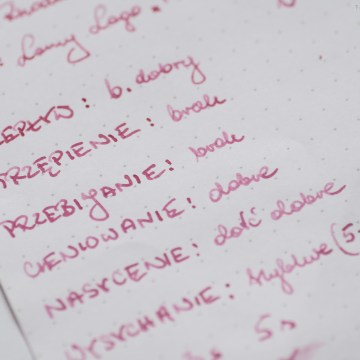 Lamy Lago
ZEPŁYW: b. dobry
TRZĘPIENIE: brak
PRZEBIJANIE: brak
CIENIOWANIE: dobre
NASYCENIE: dość dobre
WYSYCHANIE: szybkie (5-
5s